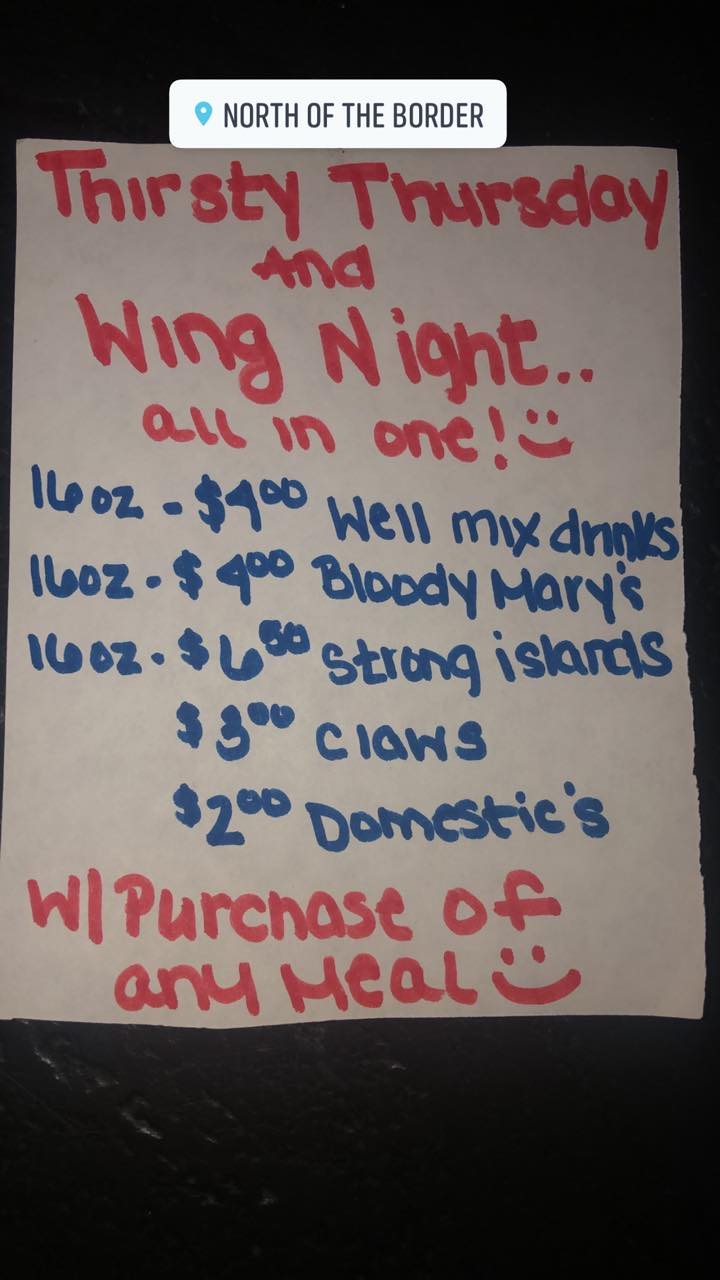 NORTH OF THE BORDER
Thirsty Thursday
And
Wing Night..
all in one! :)
16oz - $4.00 Well mix drinks
16oz - $4.00 Bloody Mary's
16oz. $6.50 Strong islands
$3.00 Claws
$2.00 Domestic's
W/Purchase of
any Meal :)